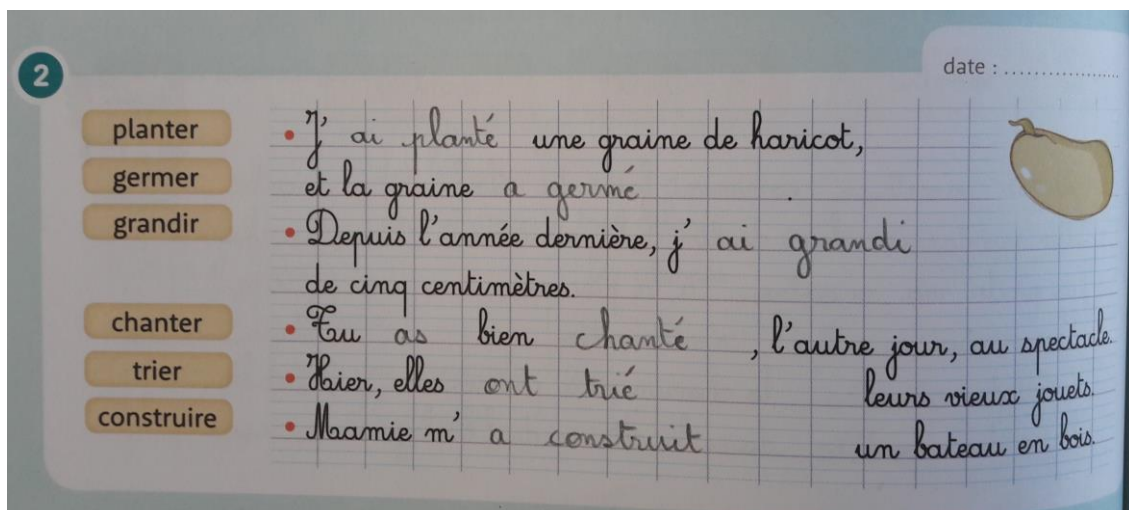 date : ..................
2
planter
germer
grandir
chanter
trier
construire
• J'ai planté une graine de haricot,
et la graine a germé .
• Depuis l'année dernière, j'ai grandi
de cinq centimètres.
• Tu as bien chanté , l'autre jour, au spectacle.
• Hier, elles ont trié leurs vieux jouets.
• Mamie m'a construit un bateau en bois.